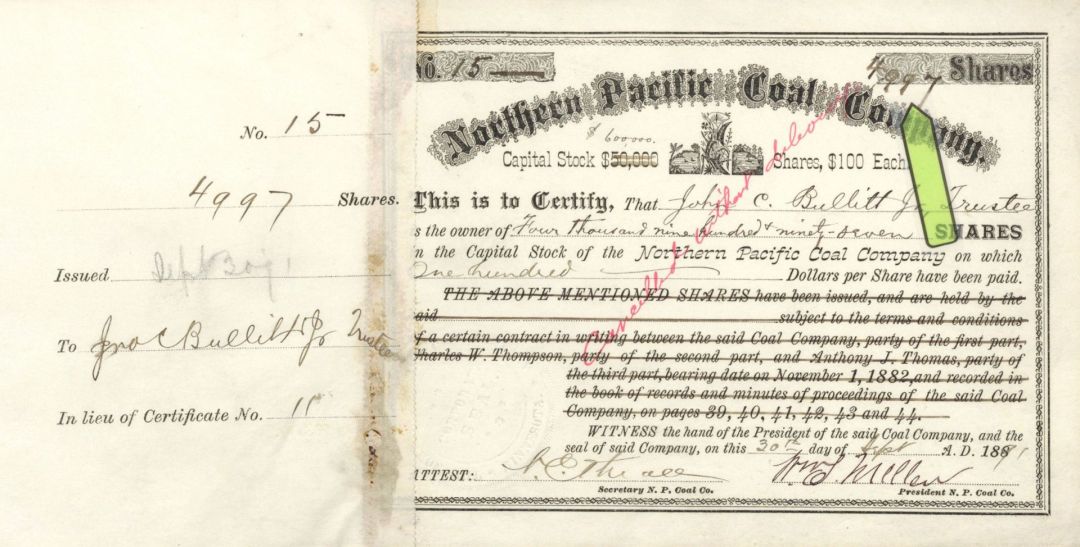 No. 15
4997 Shares.
Issued Sept 30 91
To Jno C Bullitt Jr Trustee
In lieu of Certificate No. 11
No. 15
4997 Shares
Northern Pacific Coal Company.
$600,000.
Capital Stock $50,000 Shares, $100 Each.
This is to Certify, That John C. Bullitt Jr, Trustee
is the owner of Four thousand nine hundred & ninety-seven SHARES
in the Capital Stock of the Northern Pacific Coal Company on which
One hundred Dollars per Share have been paid.
THE ABOVE MENTIONED SHARES have been issued, and are held by the
said subject to the terms and conditions
of a certain contract in writing between the said Coal Company, party of the first part,
Charles W. Thompson, party of the second part, and Anthony J. Thomas, party of
the third part, bearing date on November 1, 1882, and recorded in
the book of records and minutes of proceedings of the said Coal
Company, on pages 39, 40, 41, 42, 43 and 44.
Cancelled without
WITNESS the hand of the President of the said Coal Company, and the
seal of said Company, on this 30th day of Sept A. D. 1891
ATTEST:
Secretary N. P. Coal Co.
President N. P. Coal Co.